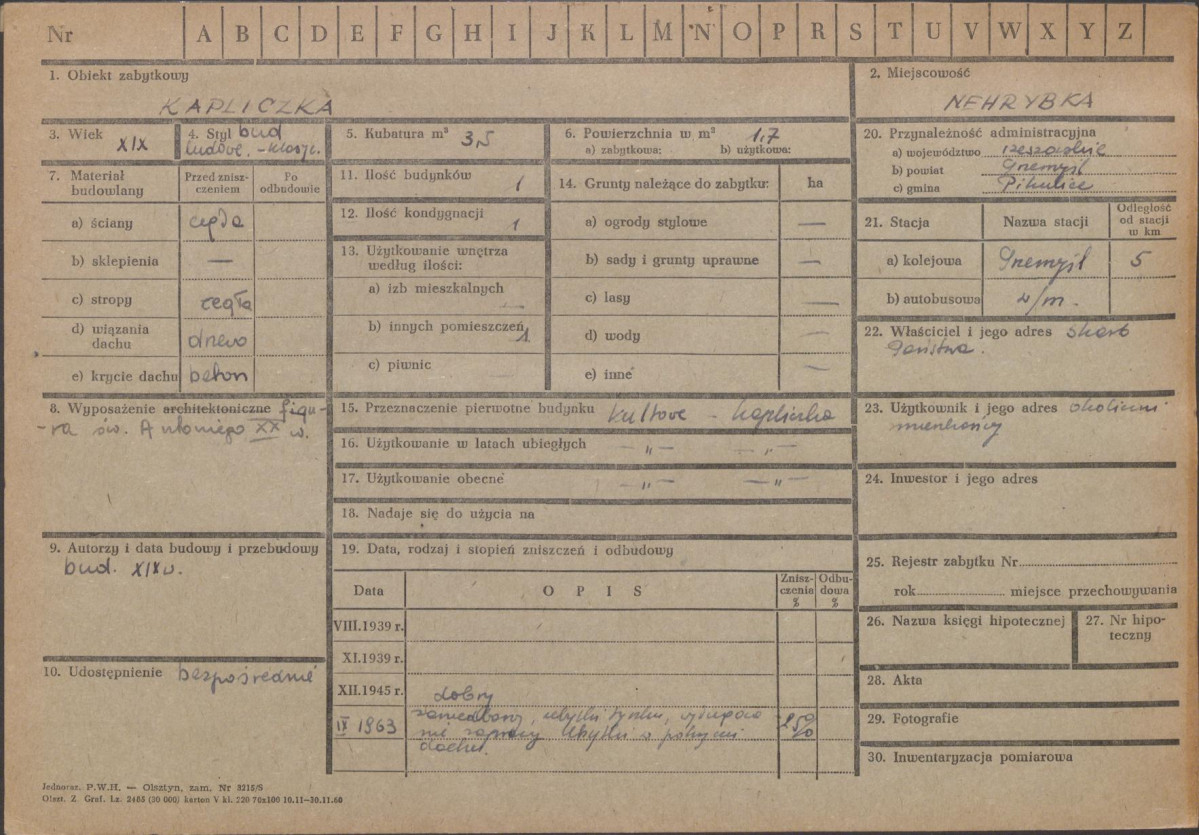 Nr A B C D E F G H I J K L M N O P R S T U V W X Y Z
1. Obiekt zabytkowy
KAPLICZKA
2. Miejscowość
NEHRYBKA
3. Wiek XIX
4. Styl bud
ludowe. - klasyc.
5. Kubatura m³ 3,5
6. Powierzchnia w m² 1,7
a) zabytkowa: b) użytkowa:
7. Materiał budowlany
Przed zniszczeniem
Po odbudowie
a) ściany cegła
b) sklepienia —
c) stropy cegła
d) wiązania dachu drewo
e) krycie dachu beton
8. Wyposażenie architektoniczne figu-
-ra św. Antoniego XX w.
9. Autorzy i data budowy i przebudowy
bud. XIX w.
10. Udostępnienie bezpośrednie
11. Ilość budynków 1
12. Ilość kondygnacji 1
13. Użytkowanie wnętrza
według ilości:
a) izb mieszkalnych —
b) innych pomieszczeń 1
c) piwnic —
14. Grunty należące do zabytku: ha
a) ogrody stylowe —
b) sady i grunty uprawne —
c) lasy —
d) wody —
e) inne —
15. Przeznaczenie pierwotne budynku kultowe - kapliczka
16. Użytkowanie w latach ubiegłych —"— —"—
17. Użytkowanie obecne —"— —"—
18. Nadaje się do użycia na
19. Data, rodzaj i stopień zniszczeń i odbudowy
Data
OPIS
Zniszczenia %
Odbudowa %
VIII.1939 r.
XI.1939 r.
XII.1945 r. dobry
IX 1963 zaniedbany, ubytki tynku, wymaga 25%
naprawy ubytki w pokryciu
dachu.
20. Przynależność administracyjna
a) województwo rzeszowskie
b) powiat Przemyśl
c) gmina Pikulice
21. Stacja
Nazwa stacji
Odległość od stacji w km
a) kolejowa Przemyśl 5
b) autobusowa w/m.
22. Właściciel i jego adres skarb
Państwa.
23. Użytkownik i jego adres okoliczni
mieszkańcy
24. Inwestor i jego adres
25. Rejestr zabytku Nr
rok miejsce przechowywania
26. Nazwa księgi hipotecznej
27. Nr hipo-
teczny
28. Akta
29. Fotografie
30. Inwentaryzacja pomiarowa
Jednoraz. P.W.H. — Olsztyn, zam. Nr 3215/S
Olszt. Z. Graf. Lz. 2485 (30 000) karton V kl. 220 70x100 10.11—30.11.60